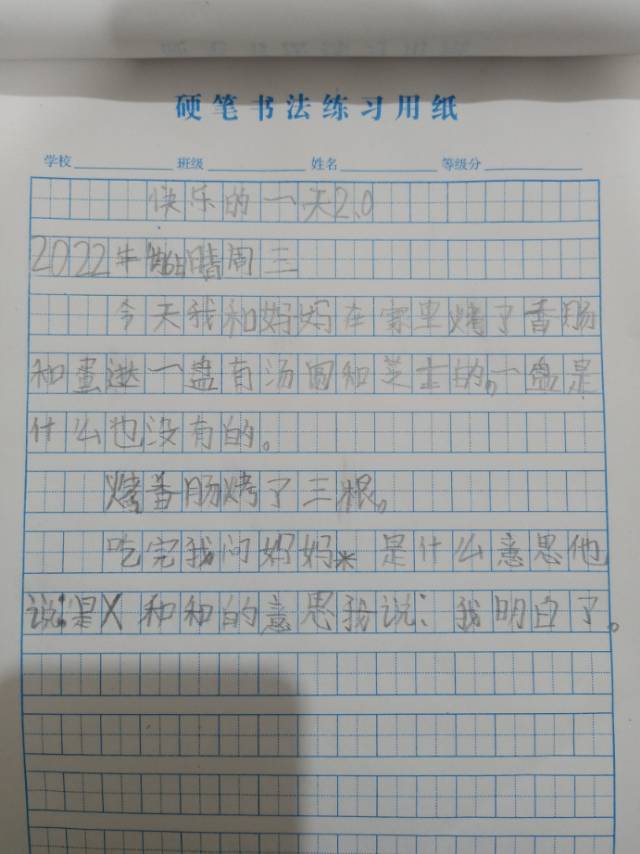 硬笔书法练习用纸
学校 班级 姓名 等级分
快乐的一天2.0
2022年 晴周三
今天我和妈妈在家里烤了香肠
和蛋挞一盘有汤圆和芝士的。一盘是
什么也没有的。
烤香肠烤了三根。
吃完我问妈妈* 是什么意思他
说:是X 和和的意思我说:我明白了。